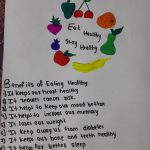 Eat
Healthy
Stay
Healthy
Benefits of Eating Healthy
1) It keeps our heart healthy
2) It reduces cancer risk.
3) It help to keep our mood better
4) It helps to improve our memory
5) It loses our weight
6) It keep away us from diabetes
7) It keep our bone and teeth healthy
8) It help for better sleep